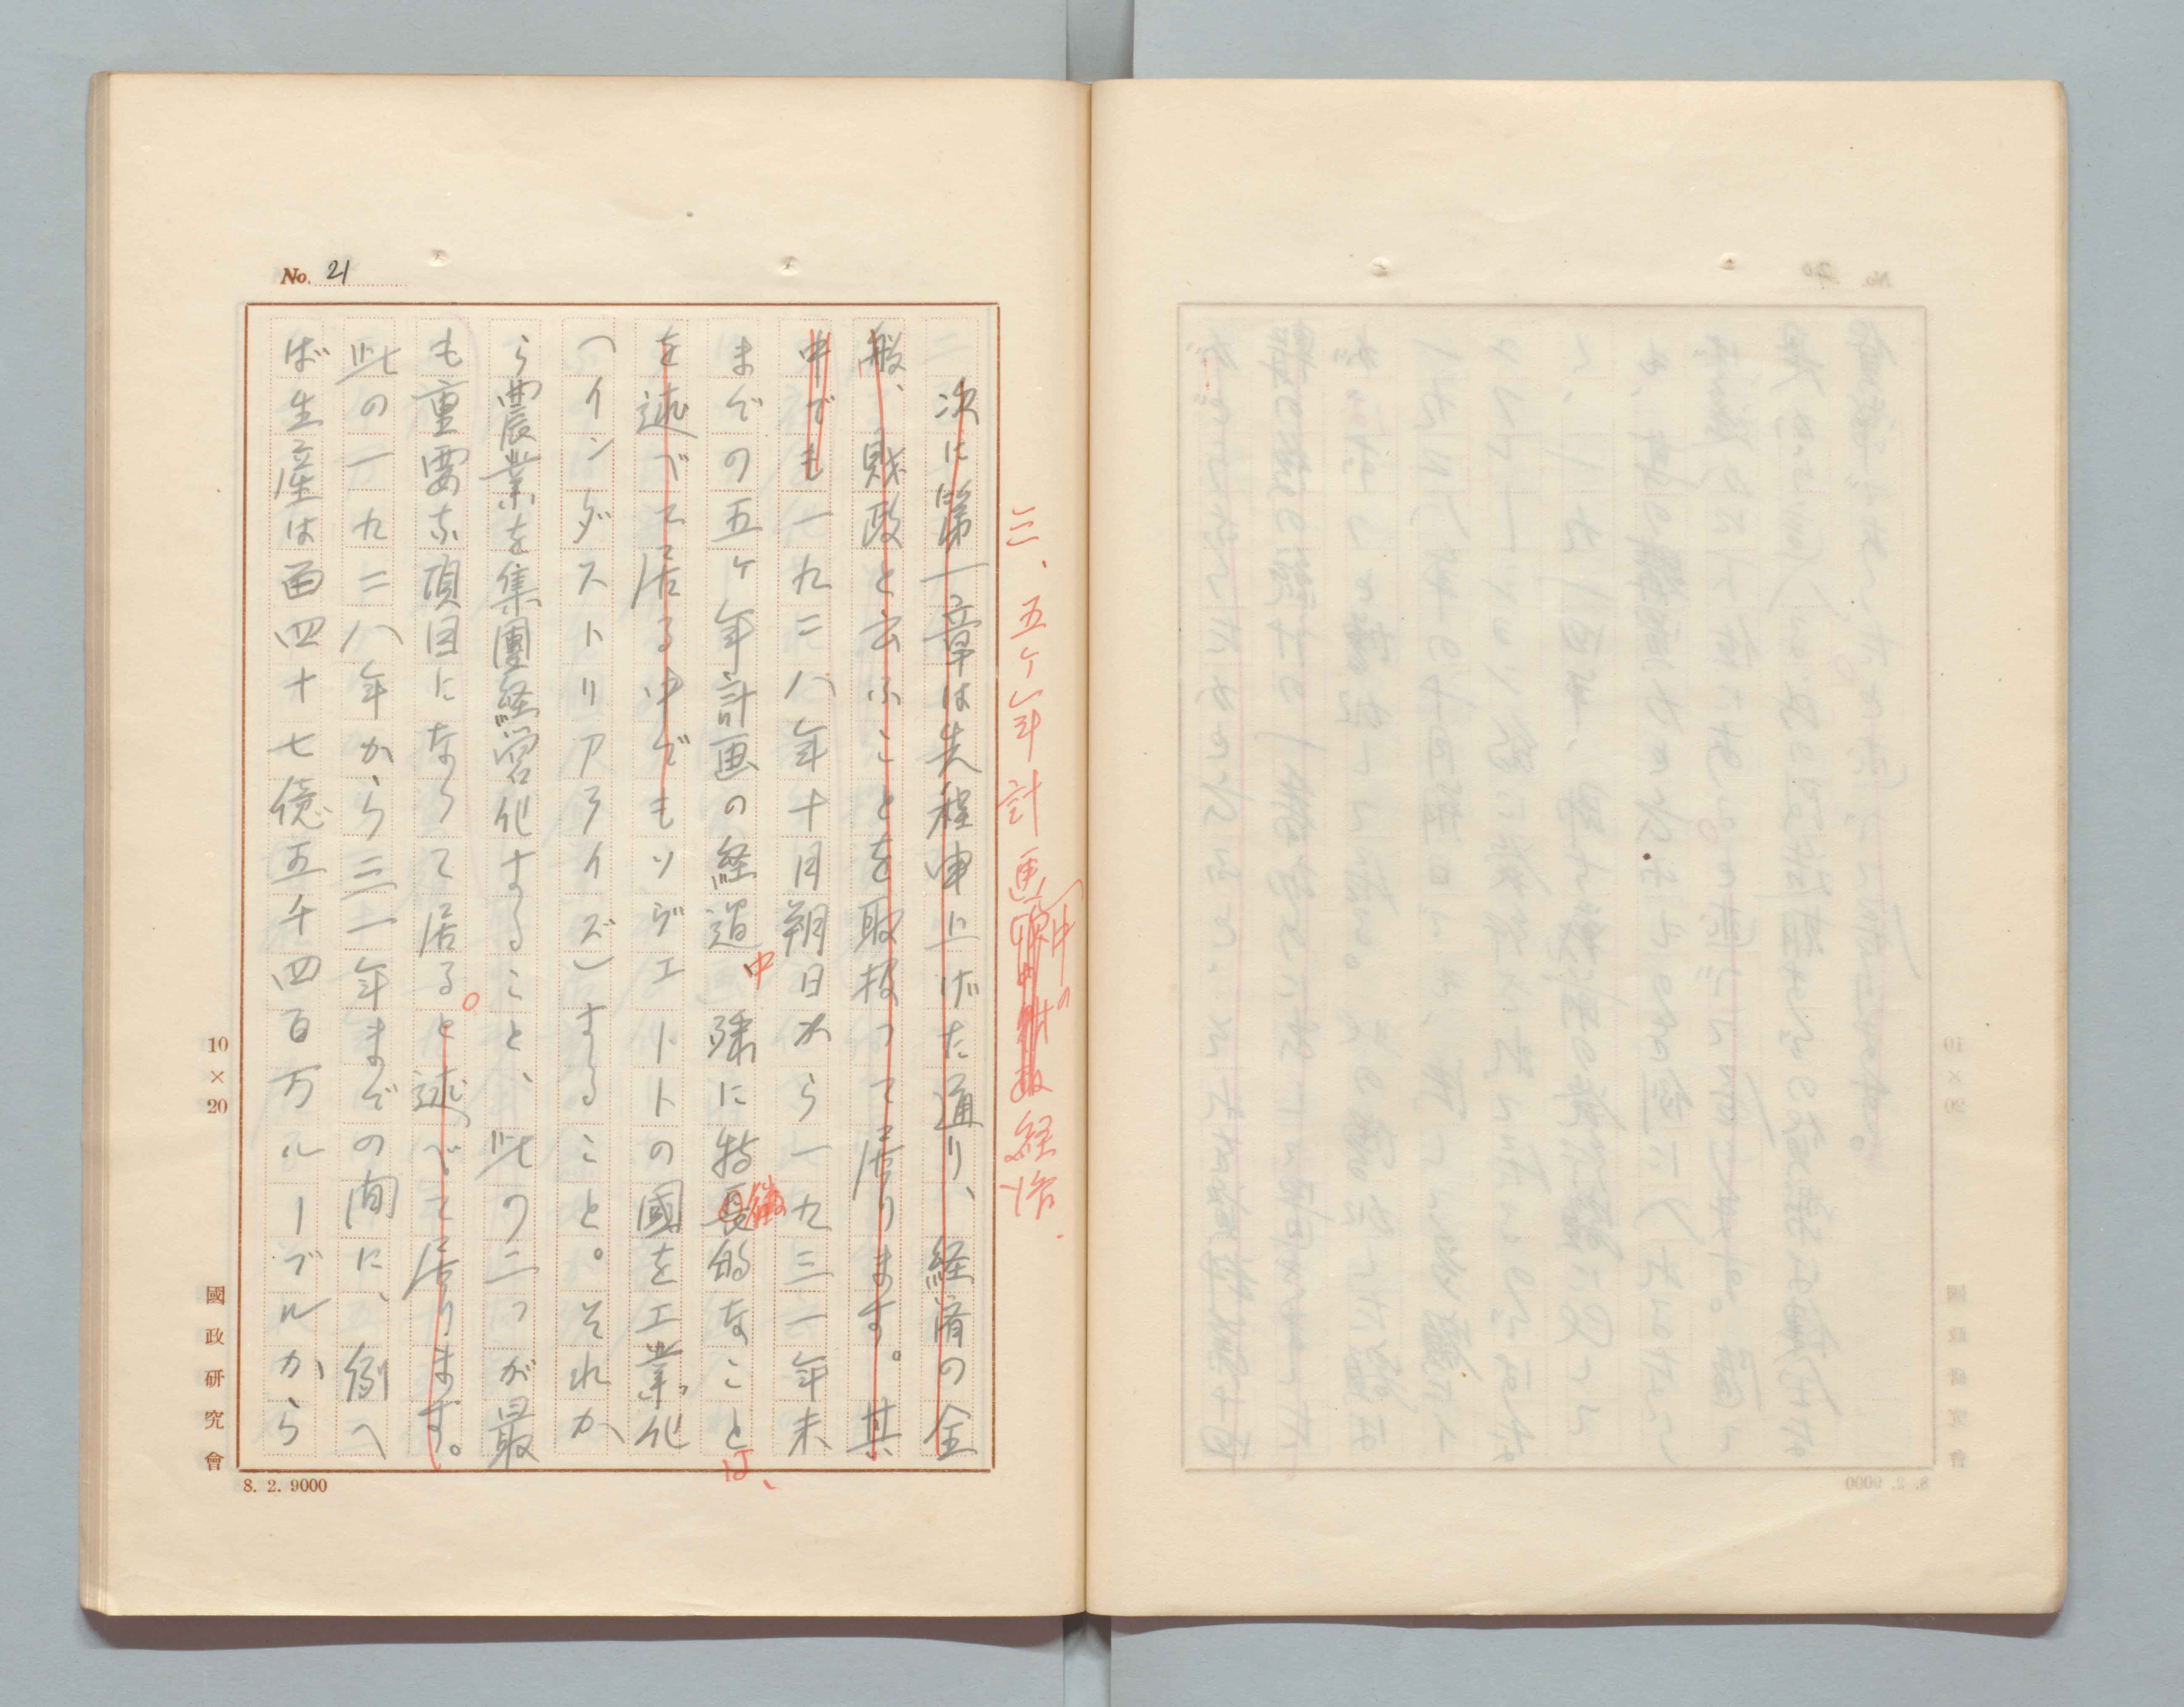 No. 21
三、五ヶ年計画中の経済
次に第一章は先程申上げた通り、経済の全
般、財政と云ふことを取扱って居ります。其
中でも一九二八年十月朔日から一九三一年末
までの五ヶ年計画の経過中殊に特長徴的なことは、
を述べて居る中でもソヴエートの國を工業化
(インダストリアライズ)すること。それか
ら農業を集團経営化すること、此の二つが最
も重要な項目になって居る。と述べて居ります。
此の一九二八年から三一年までの間に、例へ
ば生産は百四十七億五千四百万ルーブルから
10×20
國政研究會
8. 2. 9000